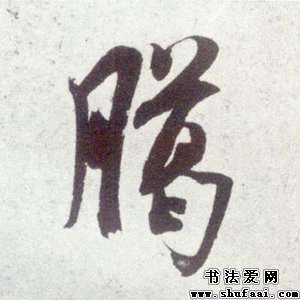 臈
书法爱网
www.shufaai.com